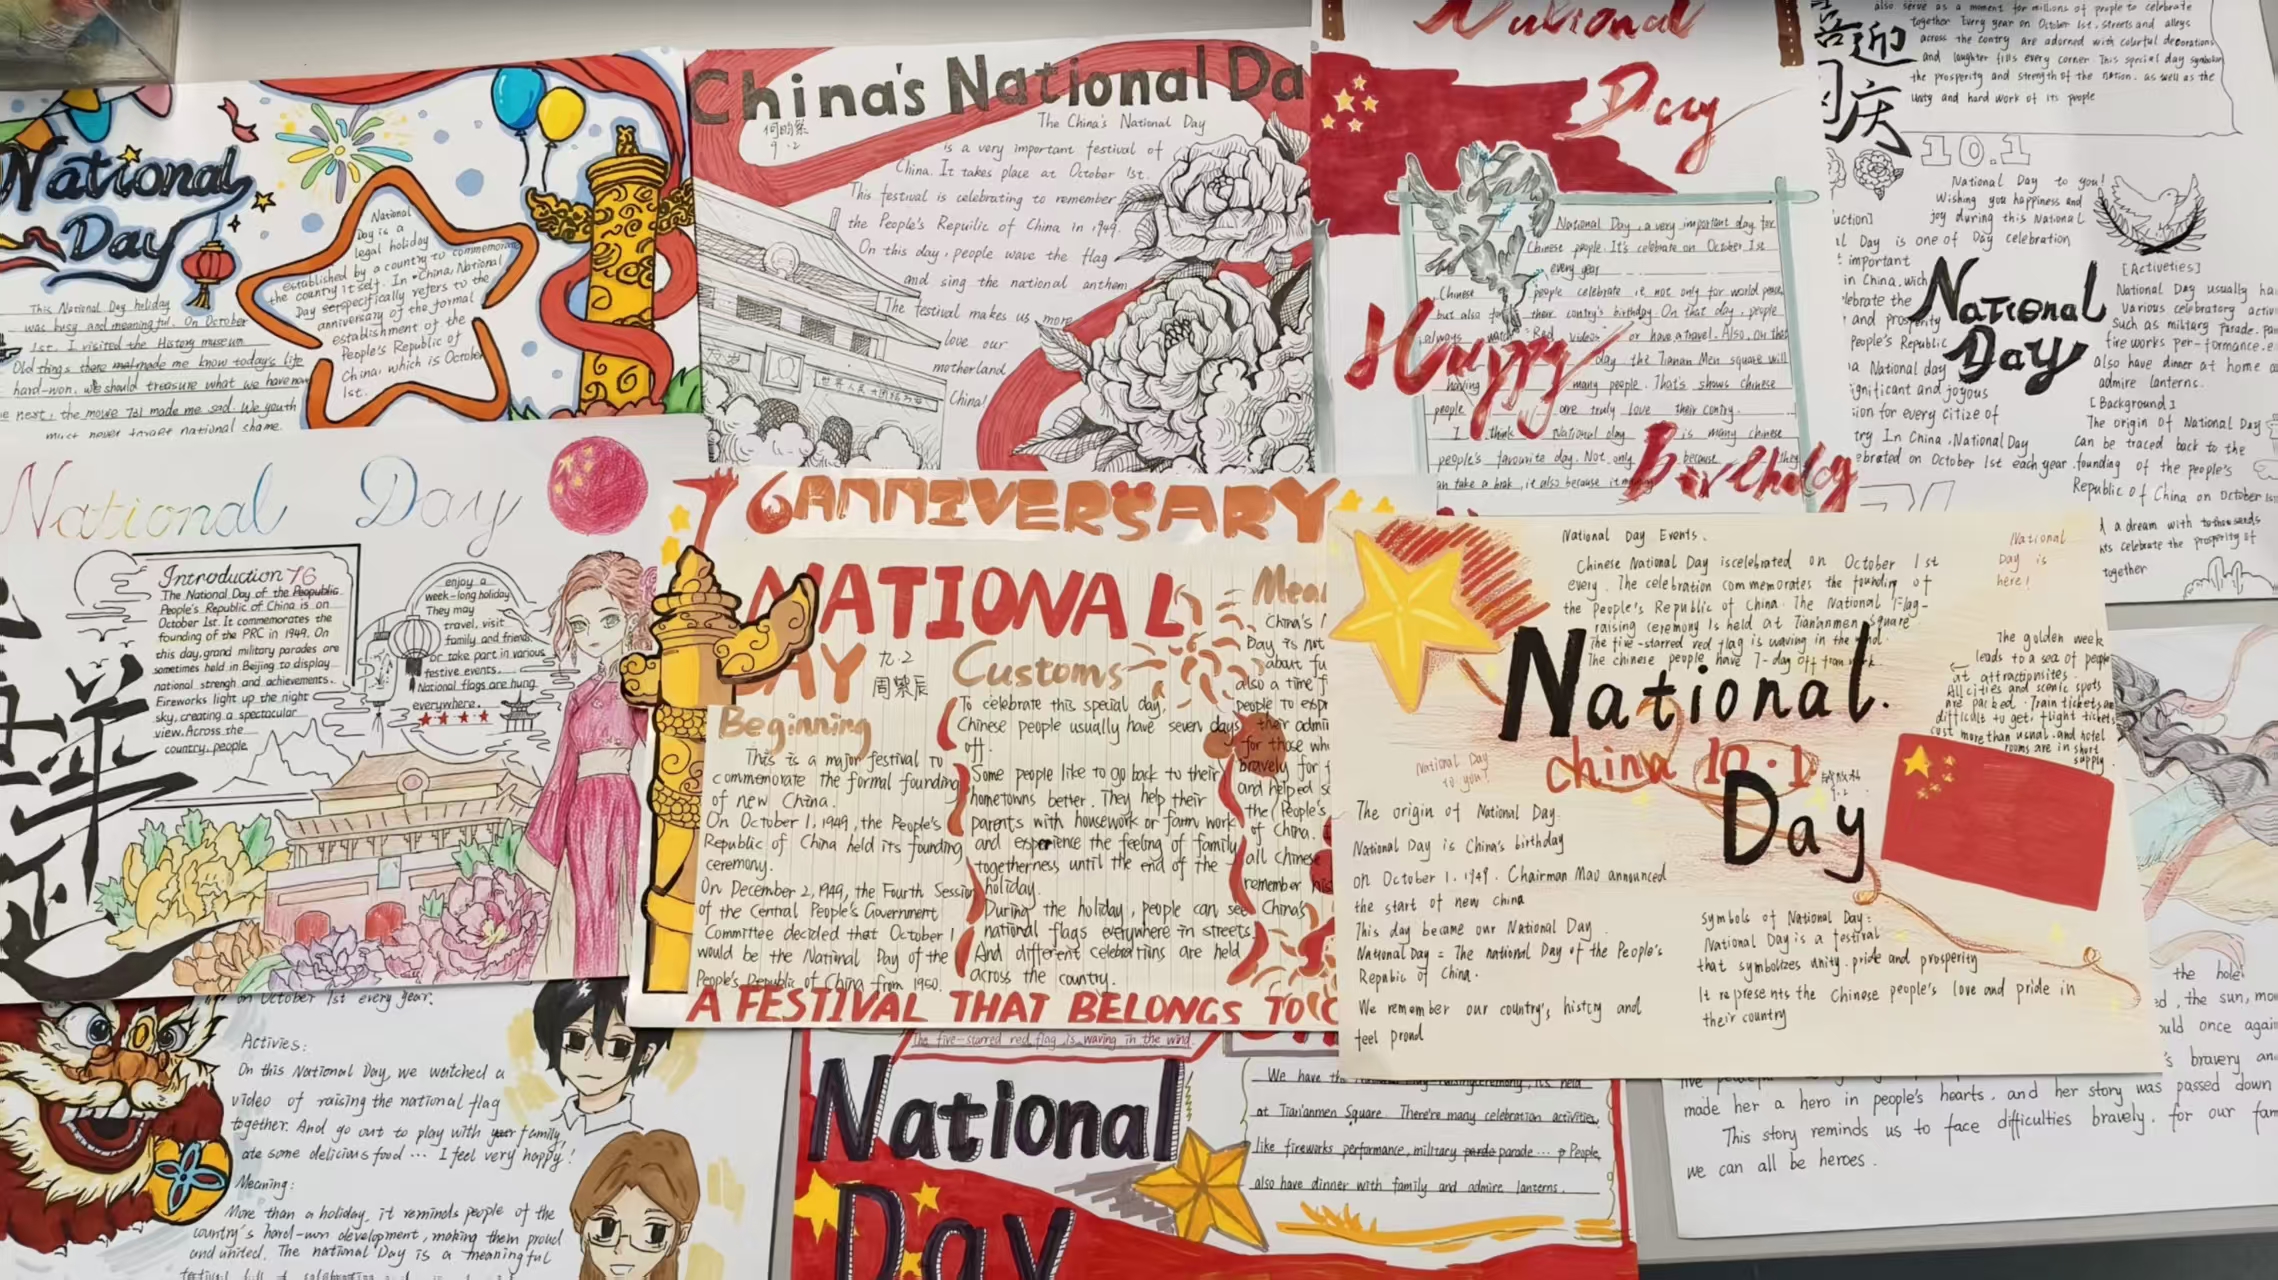 National
Day
National
Day is a
legal holiday
established by a country to commemorate
the country itself. In China, National
Day serspecifically refers to the
anniversary of the formal
establishment of the
People's Republic of
China, which is October
1st.
This National Day holiday
was busy and meaningful. On October
1st. I visited the History museum
Old things there made me know today's life
hard-won, we should treasure what we have now
next, the movie 731 made me sad. We youth
must never forget national shame.
China's National Da
9.2
The China's National Day
is a very important festival of
China. It takes place at October 1st.
This festival is celebrating to remember
the People's Repuilic of China in 1949.
On this day, people wave the flag
and sing the national anthem
The festival makes us more
love our
motherland
China!
National
Day
National Day, a very important day for
Chinese people. It's celebrate on October 1st
every year
Chinese people celebrate it not only for world peace
but also for their contry's birthday. On that day, people
always watch Red videos or have a travel. Also, on that
day the Tianan Men square will
having many people. That's shows chinese
people are truly love their contry.
I think National day is many chinese
people's favourite day. Not only because they
an take a brak, it also because it
Happy
Birthday
喜迎
国庆
also serve as a moment for millions of people to celebrate
together Every year on October 1st, streets and alleys
across the contry are adorned with colorful decorations
and laughter fills every corner. This special day symbolizes
the prosperity and strength of the nation, as well as the
unity and hard work of its people
10.1
National Day to you!
Wishing you happiness and
joy during this National
Day celebration
uction]
al Day is one of
important
in China, wich
lebrate the
and prosperity
People's Republic
a National day
ignificant and joyous
ion for every citize of
try In China, National Day
ebrated on October 1st each year
National
Day
[Activeties]
National Day usually ha
Various celebratory activ
Such as military parade, pa
fire works per-formance, e
also have dinner at home a
admire lanterns.
[Background]
The origin of National Day
can be traced back to the
founding of the people's
Republic of China on October 1st
a dream with thousands
celebrate the prosperity of
together
National Day
Introduction 76
The National Day of the Peopublic
People's Republic of China is on
October 1st. It commemorates the
founding of the PRC in 1949. On
this day, grand military parades are
sometimes held in Beijing to display
national strengh and achievements.
Fireworks light up the night
sky, creating a spectacular
view. Across the
country, people
enjoy a
week-long holiday
They may
travel, visit
family and friends
or take part in various
festive events.
National flags are hung
everywhere.
76 ANNIVERSARY
NATIONAL
DAY
九.2
Beginning
This is a major festival to
commemorate the formal founding
of new China.
On October 1, 1949, the People's
Republic of China held its founding
ceremony.
On December 2, 1949, the Fourth Session
of the Central People's Government
Committee decided that October 1
would be the National Day of the
People's Republic of China from 1950.
Customs
To celebrate this special day,
Chinese people usually have seven days
off.
Some people like to go back to their
hometowns better. They help their
parents with housework or farm work
and experience the feeling of family
togetherness until the end of the
holiday.
During the holiday, people can see
national flags everywhere in streets.
And different celebrations are held
across the country.
Mea
China's
Day is not
about fu
also a time f
people to expr
their admi
for those who
bravely for
and helped
the People's
of China.
all Chinese
remember his
China's
A FESTIVAL THAT BELONGS TO C
National Day Events.
Chinese National Day iscelebrated on October 1st
every. The celebration commemorates the founding of
the People's Republic of China. The National Flag-
raising ceremony Is held at Tian'anmen square
The five-starred red flag is waving in the wind.
The chinese people have 7-day off from work.
National
Day is
here!
The golden week
leads to a sea of people
at attractionsites.
All cities and scenic spots
are packed. Train tickets are
difficult to get, flight tickets
cost more than usual, and hotel
rooms are in short
supply.
National
China 10.1
Day
National Day
to you!
The origin of National Day.
National Day is China's birthday
on October 1. 1949. Chairman Mao announced
the start of new china
This day became our National Day
National Day = The national Day of the People's
Repabic of China.
We remember our country's, history and
feel proud
symbols of National Day:
National Day is a festival
that symbolizes unity, pride and prosperity
It represents the Chinese people's love and pride in
their country
on October 1st every year.
Activies:
On this National Day, we watched a
video of raising the national flag
together. And go out to play with family,
ate some delicious food ... I feel very happy!
Meaning:
More than a holiday, it reminds people of the
country's hard-won development, making them proud
and united. The national Day is a meaningful
The five-starred red flag is waving in the wind.
National
Day
We have the raising ceremony, it's held
at Tian'anmen Square. There're many celebration activities,
like fireworks performance, military parde parade ... People
also have dinner with family and admire lanterns.
the hole
the sun, mo
ould once again
's bravery an
made her a hero in people's hearts, and her story was passed down
This story reminds us to face difficulties bravely, for our fam
we can all be heroes.